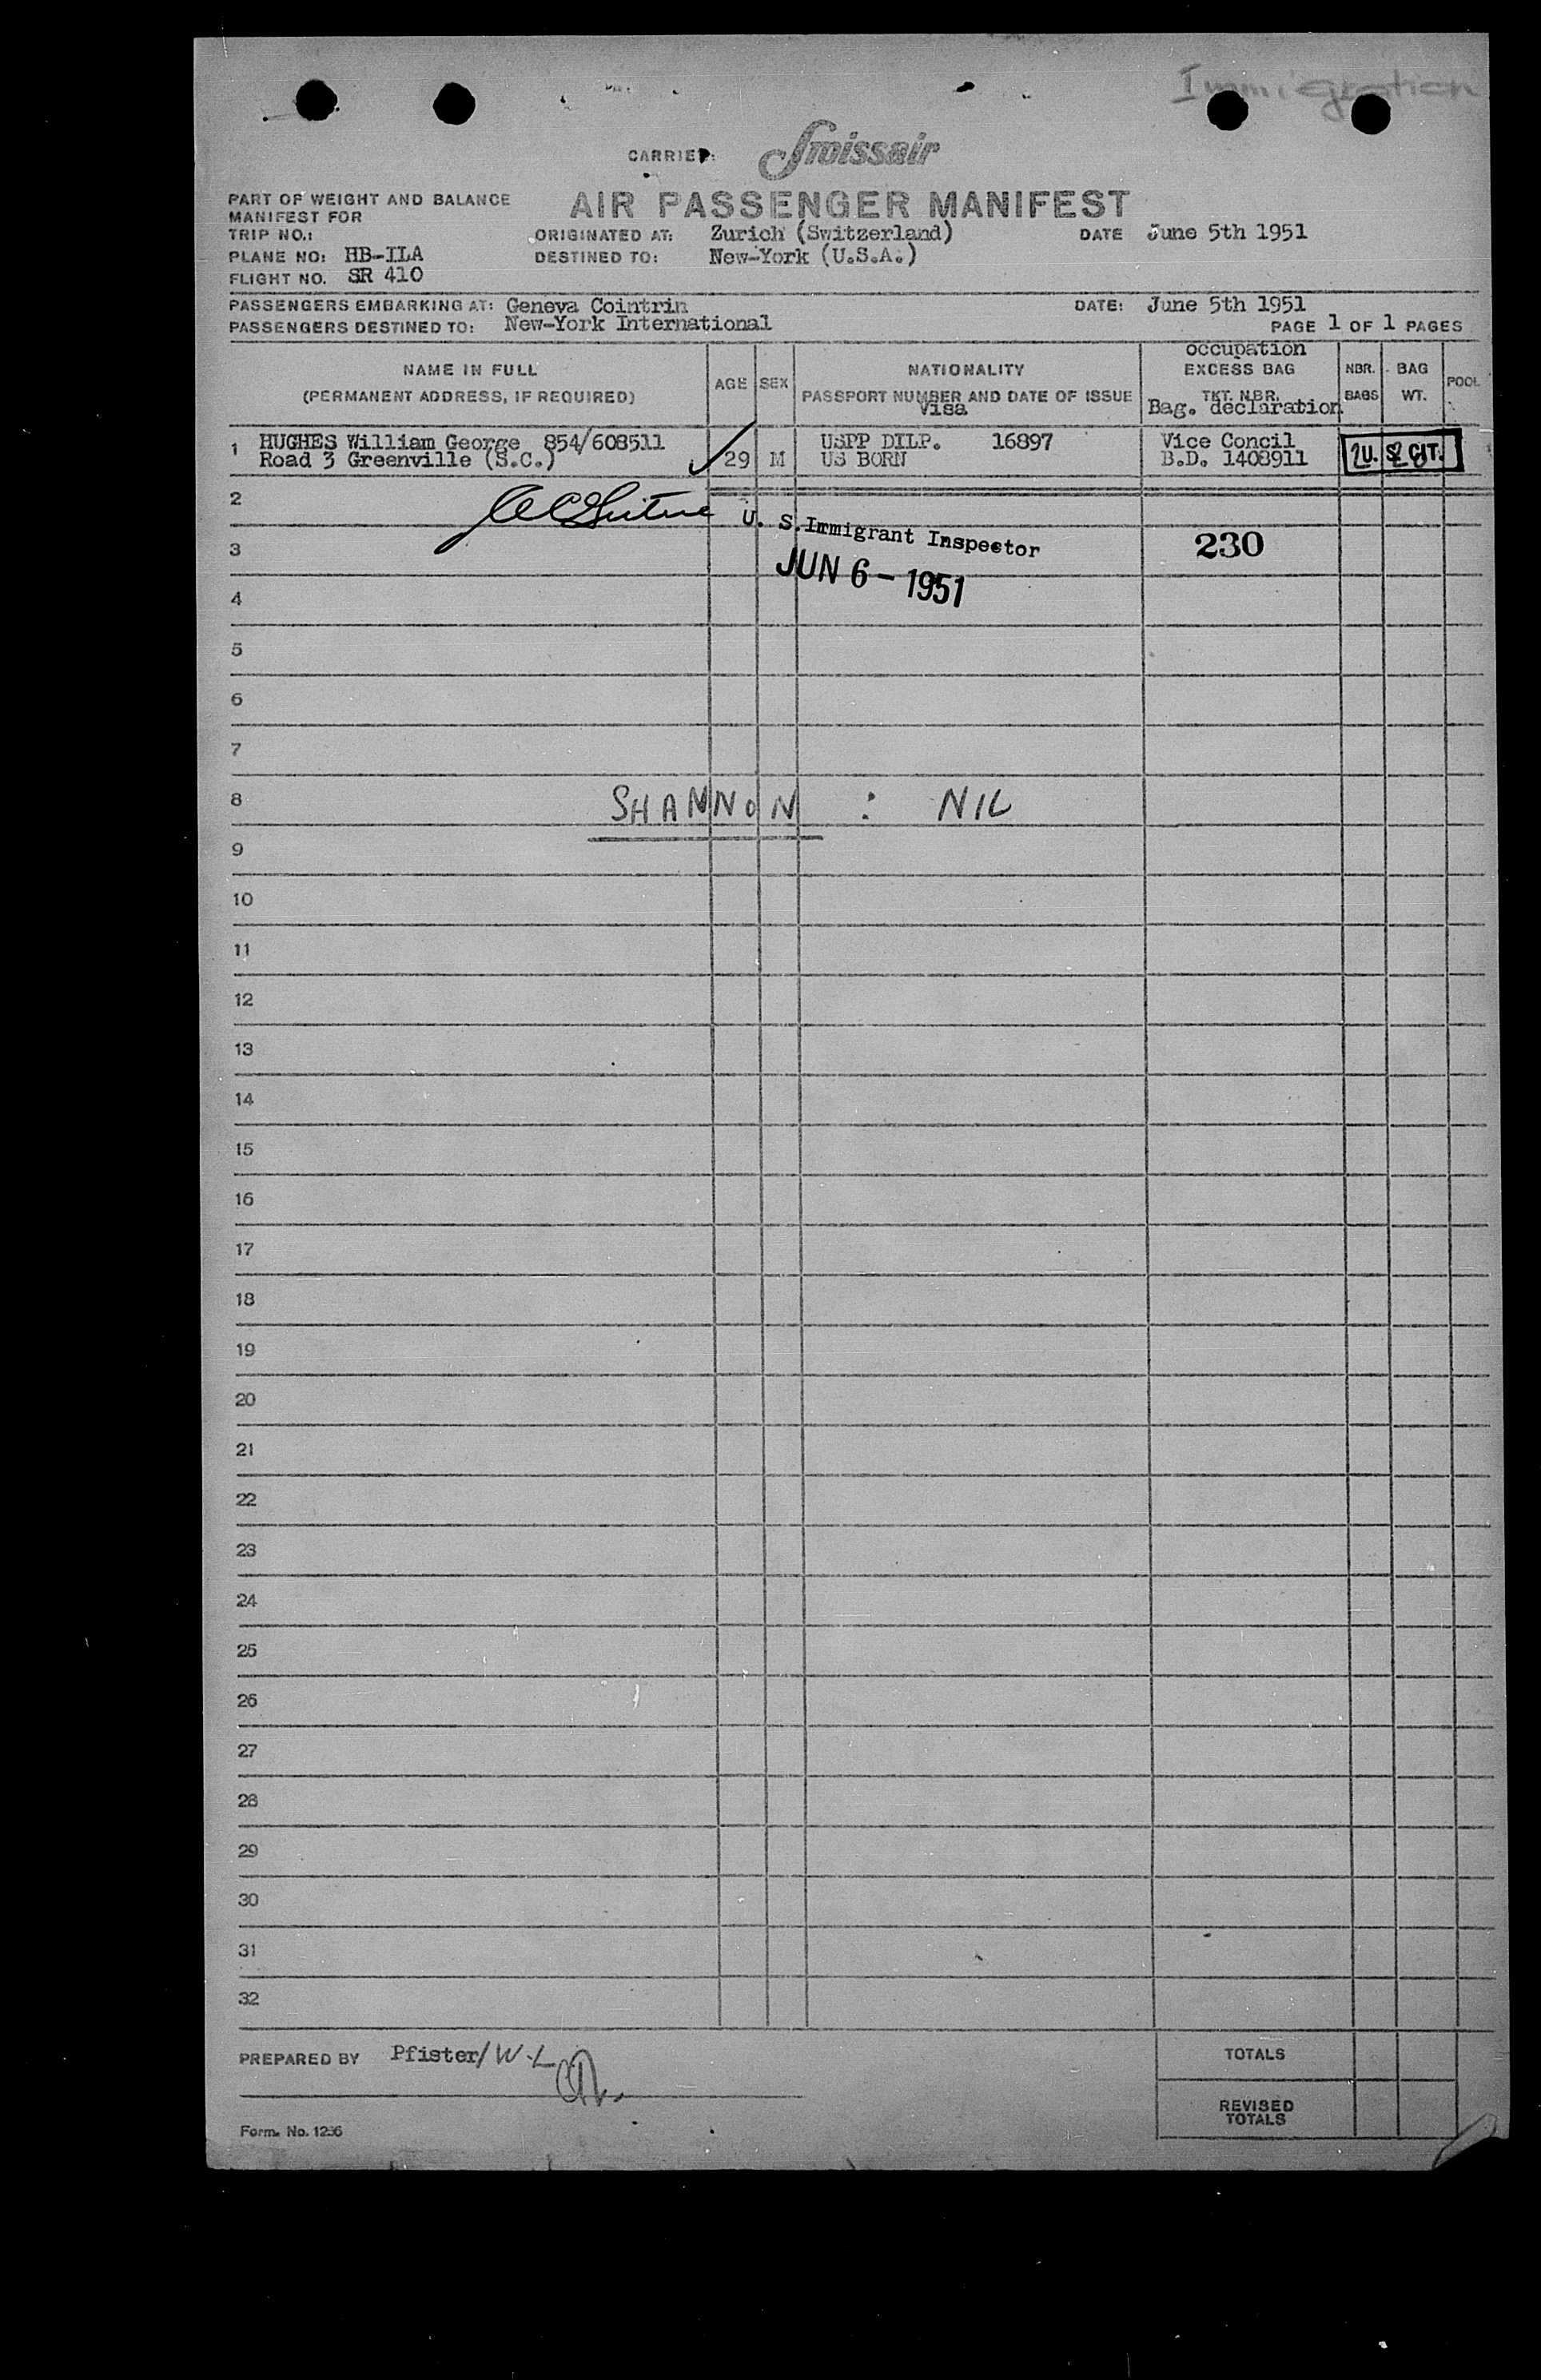 Immigration
CARRIER: Swissair
PART OF WEIGHT AND BALANCE
MANIFEST FOR
AIR PASSENGER MANIFEST
TRIP NO.: ORIGINATED AT: Zurich (Switzerland) DATE June 5th 1951
PLANE NO: HB-ILA DESTINED TO: New-York (U.S.A.)
FLIGHT NO. SR 410
PASSENGERS EMBARKING AT: Geneva Cointrin DATE: June 5th 1951
PASSENGERS DESTINED TO: New-York International PAGE 1 OF 1 PAGES
occupation
NAME IN FULL AGE SEX NATIONALITY EXCESS BAG NBR. BAG POOL
(PERMANENT ADDRESS, IF REQUIRED) PASSPORT NUMBER AND DATE OF ISSUE TKT. NBR. BAGS WT.
Visa Bag. declaration
1 HUGHES William George 854/608511 USPP DILP. 16897 Vice Concil
Road 3 Greenville (S.C.) 29 M US BORN B.D. 1408911 U. S. CIT.
2
U. S. Immigrant Inspector
3 230
JUN 6 - 1951
4
5
6
7
8 SHANNON : NIL
9
10
11
12
13
14
15
16
17
18
19
20
21
22
23
24
25
26
27
28
29
30
31
32
PREPARED BY Pfister/W.L TOTALS
REVISED
TOTALS
Form. No. 1256